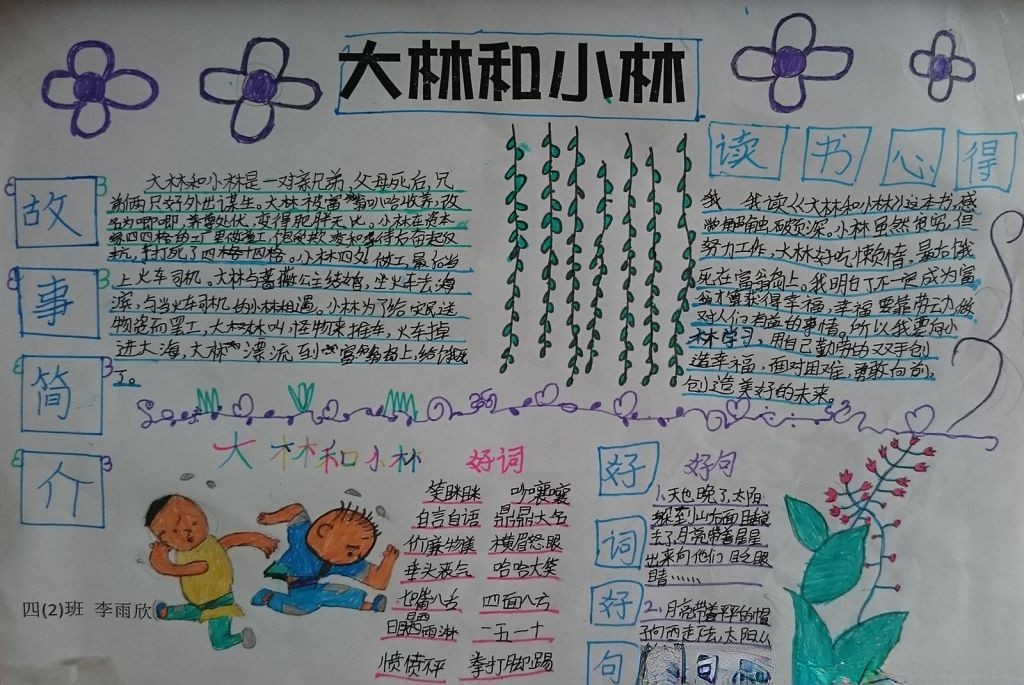 大林和小林
故
事
简
介
大林和小林是一对亲兄弟，父母死后，兄
弟两只好外出谋生。大林被富翁叭哈收养，改
名为唧唧，养尊处优，变得肥胖无比。小林在资本
家四四格的工厂里做童工，饱受欺
抗，打死了四格。小林四处做工，最后当
上火车司机。大林与蔷薇公主结婚，坐火车去海
滨，与当火车司机的小林相遇。小林为了给灾民送
物资而罢工，大林叫怪物来推车，火车掉
进大海，大林漂流到富翁岛上，给饿死
了。
读书心得
我读《大林和小林》这本书，感
触破深。小林虽然穷，但
努力工作，大林好吃懒惰，最后饿
死在富翁岛上。我明白了不一定成为富
翁才算获得幸福，幸福要靠劳动，做
对人们有益的事情，所以我要向小
林学习，用自己勤劳的双手创
造幸福，面对困难，勇敢向前，
创造美好的未来。
大林和小林
好词
笑眯眯 吵嚷嚷
自言自语 鼎鼎大名
价廉物美 横眉怒眼
垂头丧气 哈哈大笑
七嘴八舌 四面八方
日晒雨淋 一五一十
愤愤不平 拳打脚踢
四(2)班 李雨欣
好
词
好
句
好句
1、天也晚了，太阳
躲到山后面睡觉
去了，月亮带着星星
出来向他们眨眼
睛……
2、月亮带着
向西走去，太阳从